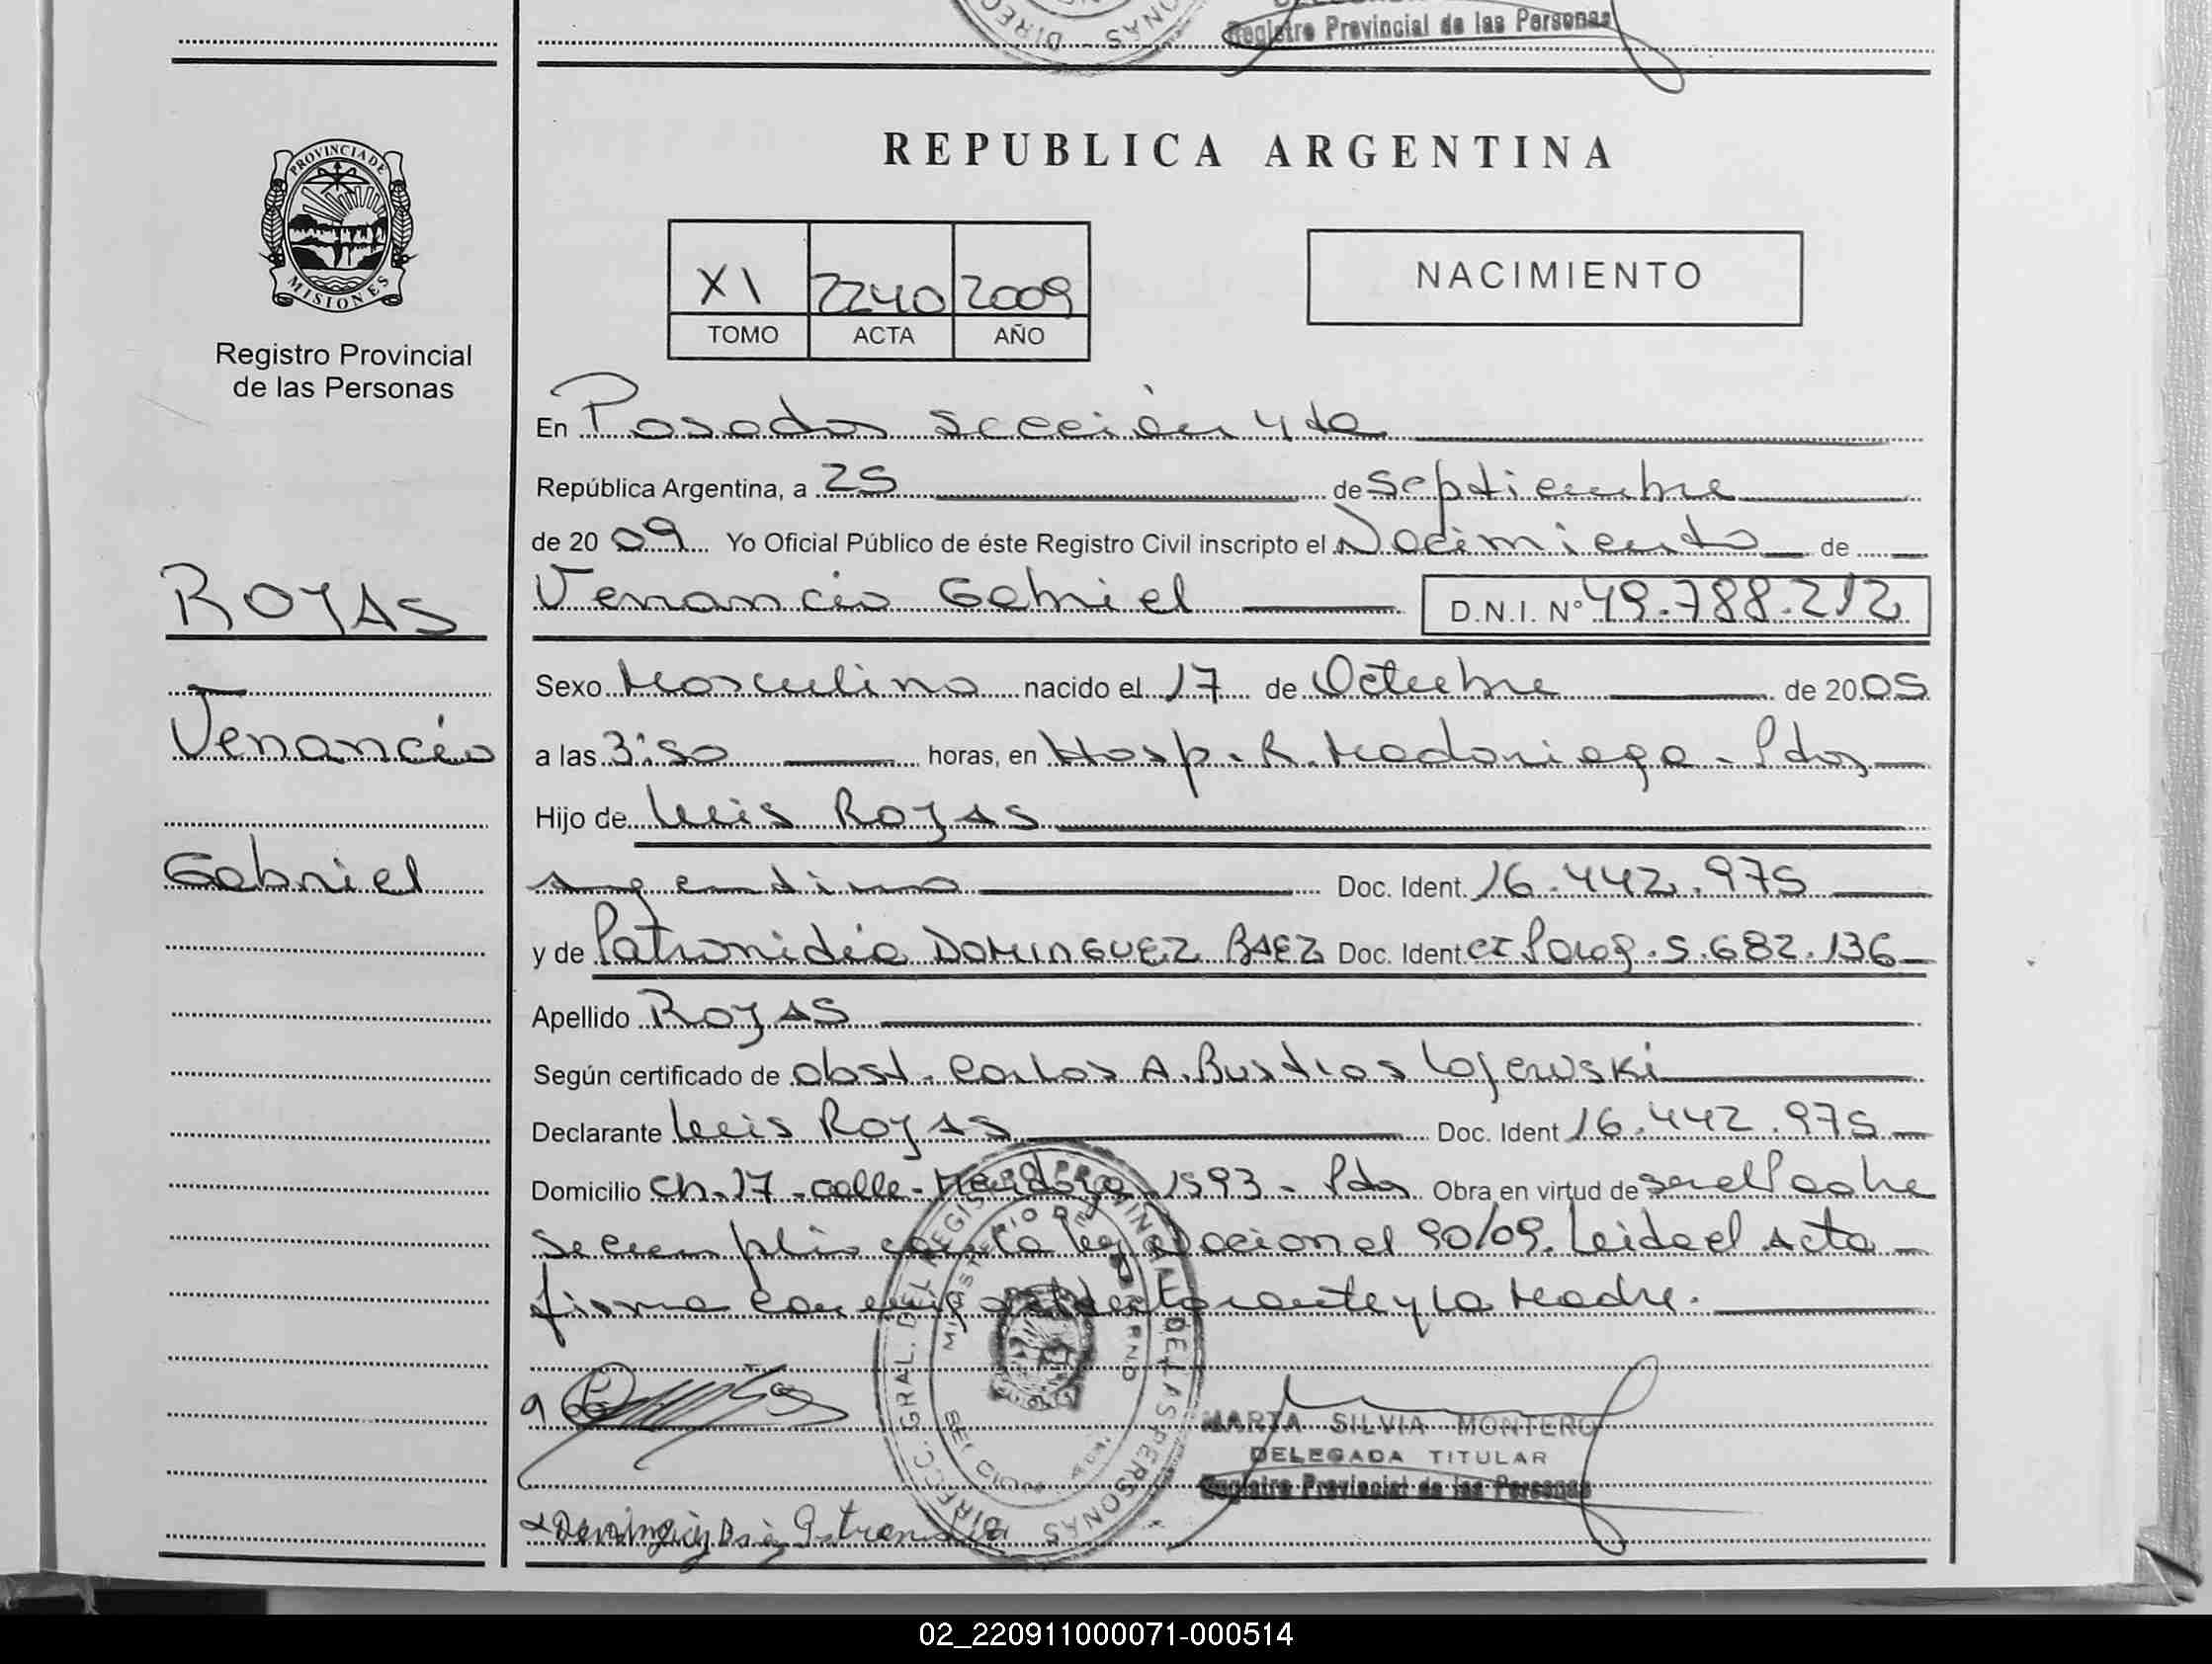 Registro Provincial de las Personas
REPUBLICA ARGENTINA
PROVINCIA DE
MISIONES
Registro Provincial
de las Personas
XI 2240 2009
TOMO ACTA AÑO
NACIMIENTO
En Posadas sección 4ta
República Argentina, a 25 de Septiembre
de 2009 Yo Oficial Público de éste Registro Civil inscripto el Nacimiento de
Venancio Gabriel D.N.I. N° 49.788.212
ROJAS
Venancio
Gabriel
Sexo Masculino nacido el 17 de Octubre de 2005
a las 3:50 horas, en Hosp. R. Madariaga - Pdas
Hijo de Luis ROJAS
Argentino Doc. Ident. 16.442.975
y de Patronidia DOMINGUEZ BAEZ Doc. Ident CI Parag. 5.682.136
Apellido ROJAS
Según certificado de obst. Carlos A. Bustios Lojewski
Declarante Luis ROJAS Doc. Ident 16.442.975
Domicilio Ch. 17 - calle - Mendoza 1593 - Pdas Obra en virtud de ser el Padre
Se cumplio con la ley Nacional 90/09. Leida el Acta
firma conmigo el declarante y la Madre.
DIRECC. GRAL. DEL REGISTRO PROVINCIAL DE LAS PERSONAS
MINISTERIO DE GOBIERNO
MARTA SILVIA MONTERO
DELEGADA TITULAR
Registro Provincial de las Personas
02_220911000071-000514